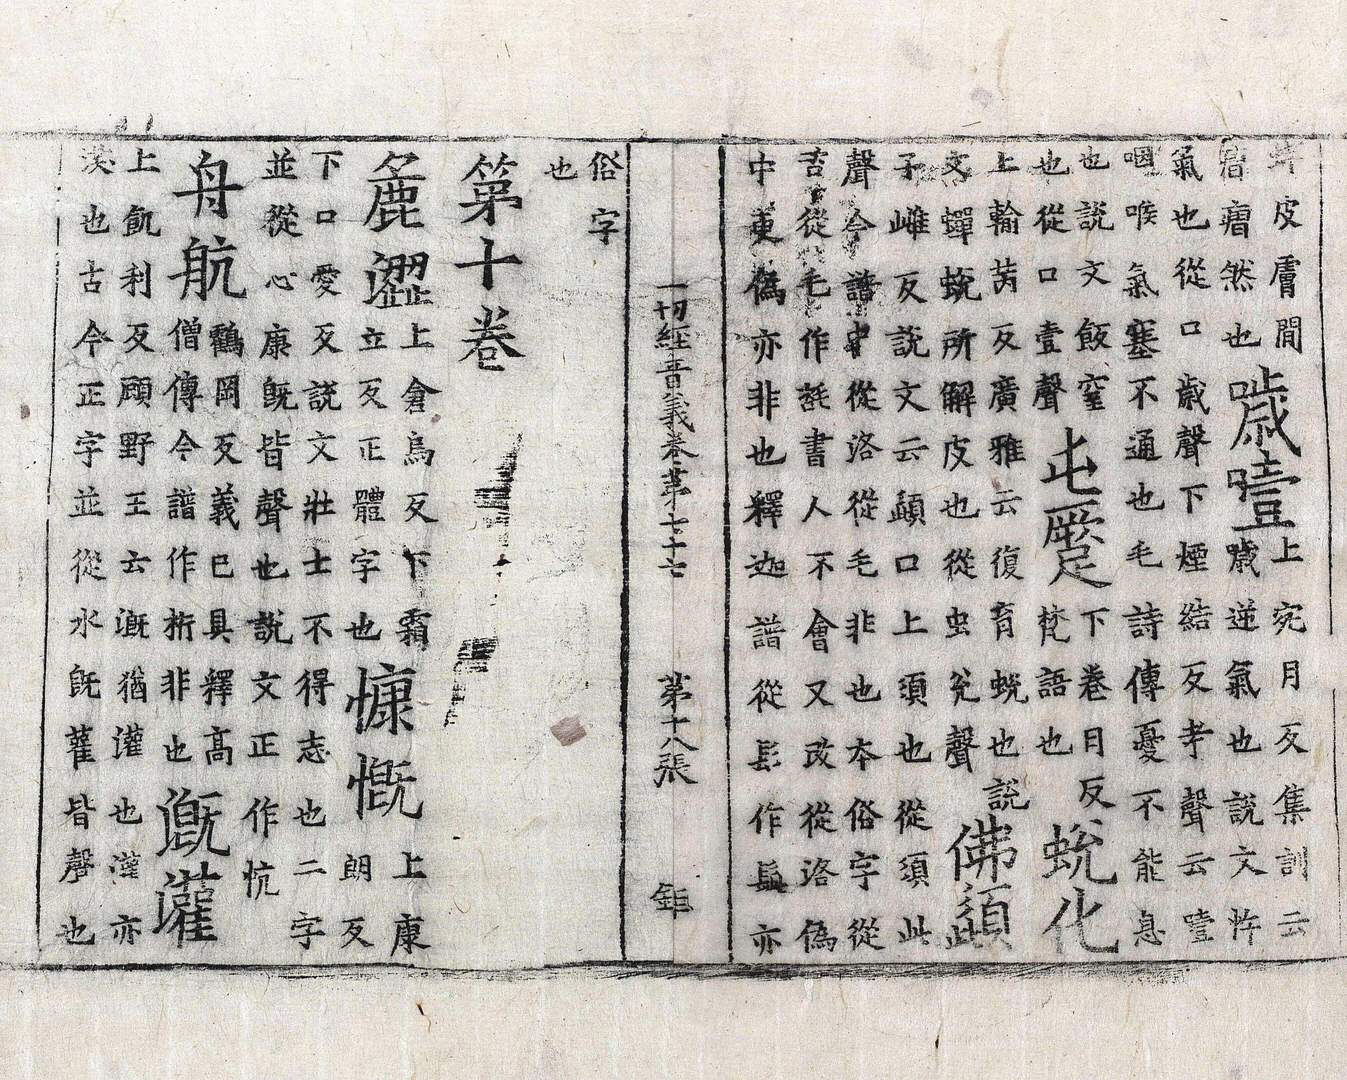 皮膚間
然也
噦噎
上宛月反集訓云
噦逆氣也說文忤
氣也從口歲聲下煙結反考聲云噎
咽喉氣塞不通也毛詩傳憂不能息
也說文飯窒
也從口壹聲
屯
下卷日反
梵語也
蛻化
上輸芮反廣雅云復育蛻也說
文蟬蛻所解皮也從虫兊聲
佛頾
子雌反說文云顚口上須也從須此
聲今譜中從洛從毛非也本俗字從
吉從毛作㲖書人不會又改從洛偽
中更偽亦非也釋迦譜從髟作髭亦
一切經音義卷第七十七 第十八張 鉅
俗字
也
第十卷
麁澀
上倉烏反下霜
立反正體字也
慷慨
上康
朗反
下口愛反說文壯士不得志也二字
並從心康既皆聲也說文正作忼
舟航
鶴岡反義已具釋高
僧傳今譜作桁非也
溉灌
上飢利反顧野王云溉猶灌也灌亦
也古今正字並從水既雚皆聲也